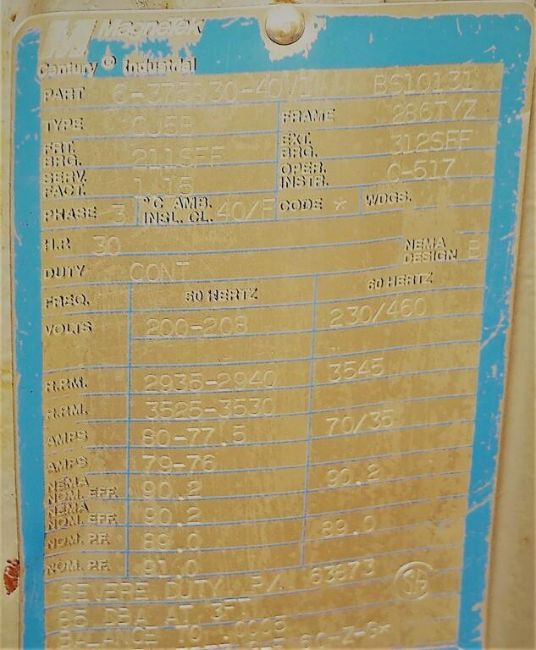 M Magnetek
Century ® Industrial
PART 6-375930-40 BS10131
TYPE FRAME 286TYZ
FRT. BRG. 211SFF EXT. BRG. 312SFF
SERV. FACT. 1.15 OPER. INSTR. C-517
PHASE 3 °C AMB. INSL. CL. 40/F CODE * WDGS.
H.P. 30
DUTY CONT NEMA DESIGN B
FREQ. 50 HERTZ 60 HERTZ
VOLTS 200-208 230/460
R.P.M. 2935-2940 3545
R.P.M. 3525-3530
AMPS 80-77.5 70/35
AMPS 79-76
NEMA NOM. EFF. 90.2 90.2
NEMA NOM. EFF. 90.2
NOM. P.F. 89.0 89.0
NOM. P.F. 91.0
SEVERE DUTY P/ 63673
85 DBA AT 3FT
BALANCE TO .0005
60-Z-S*